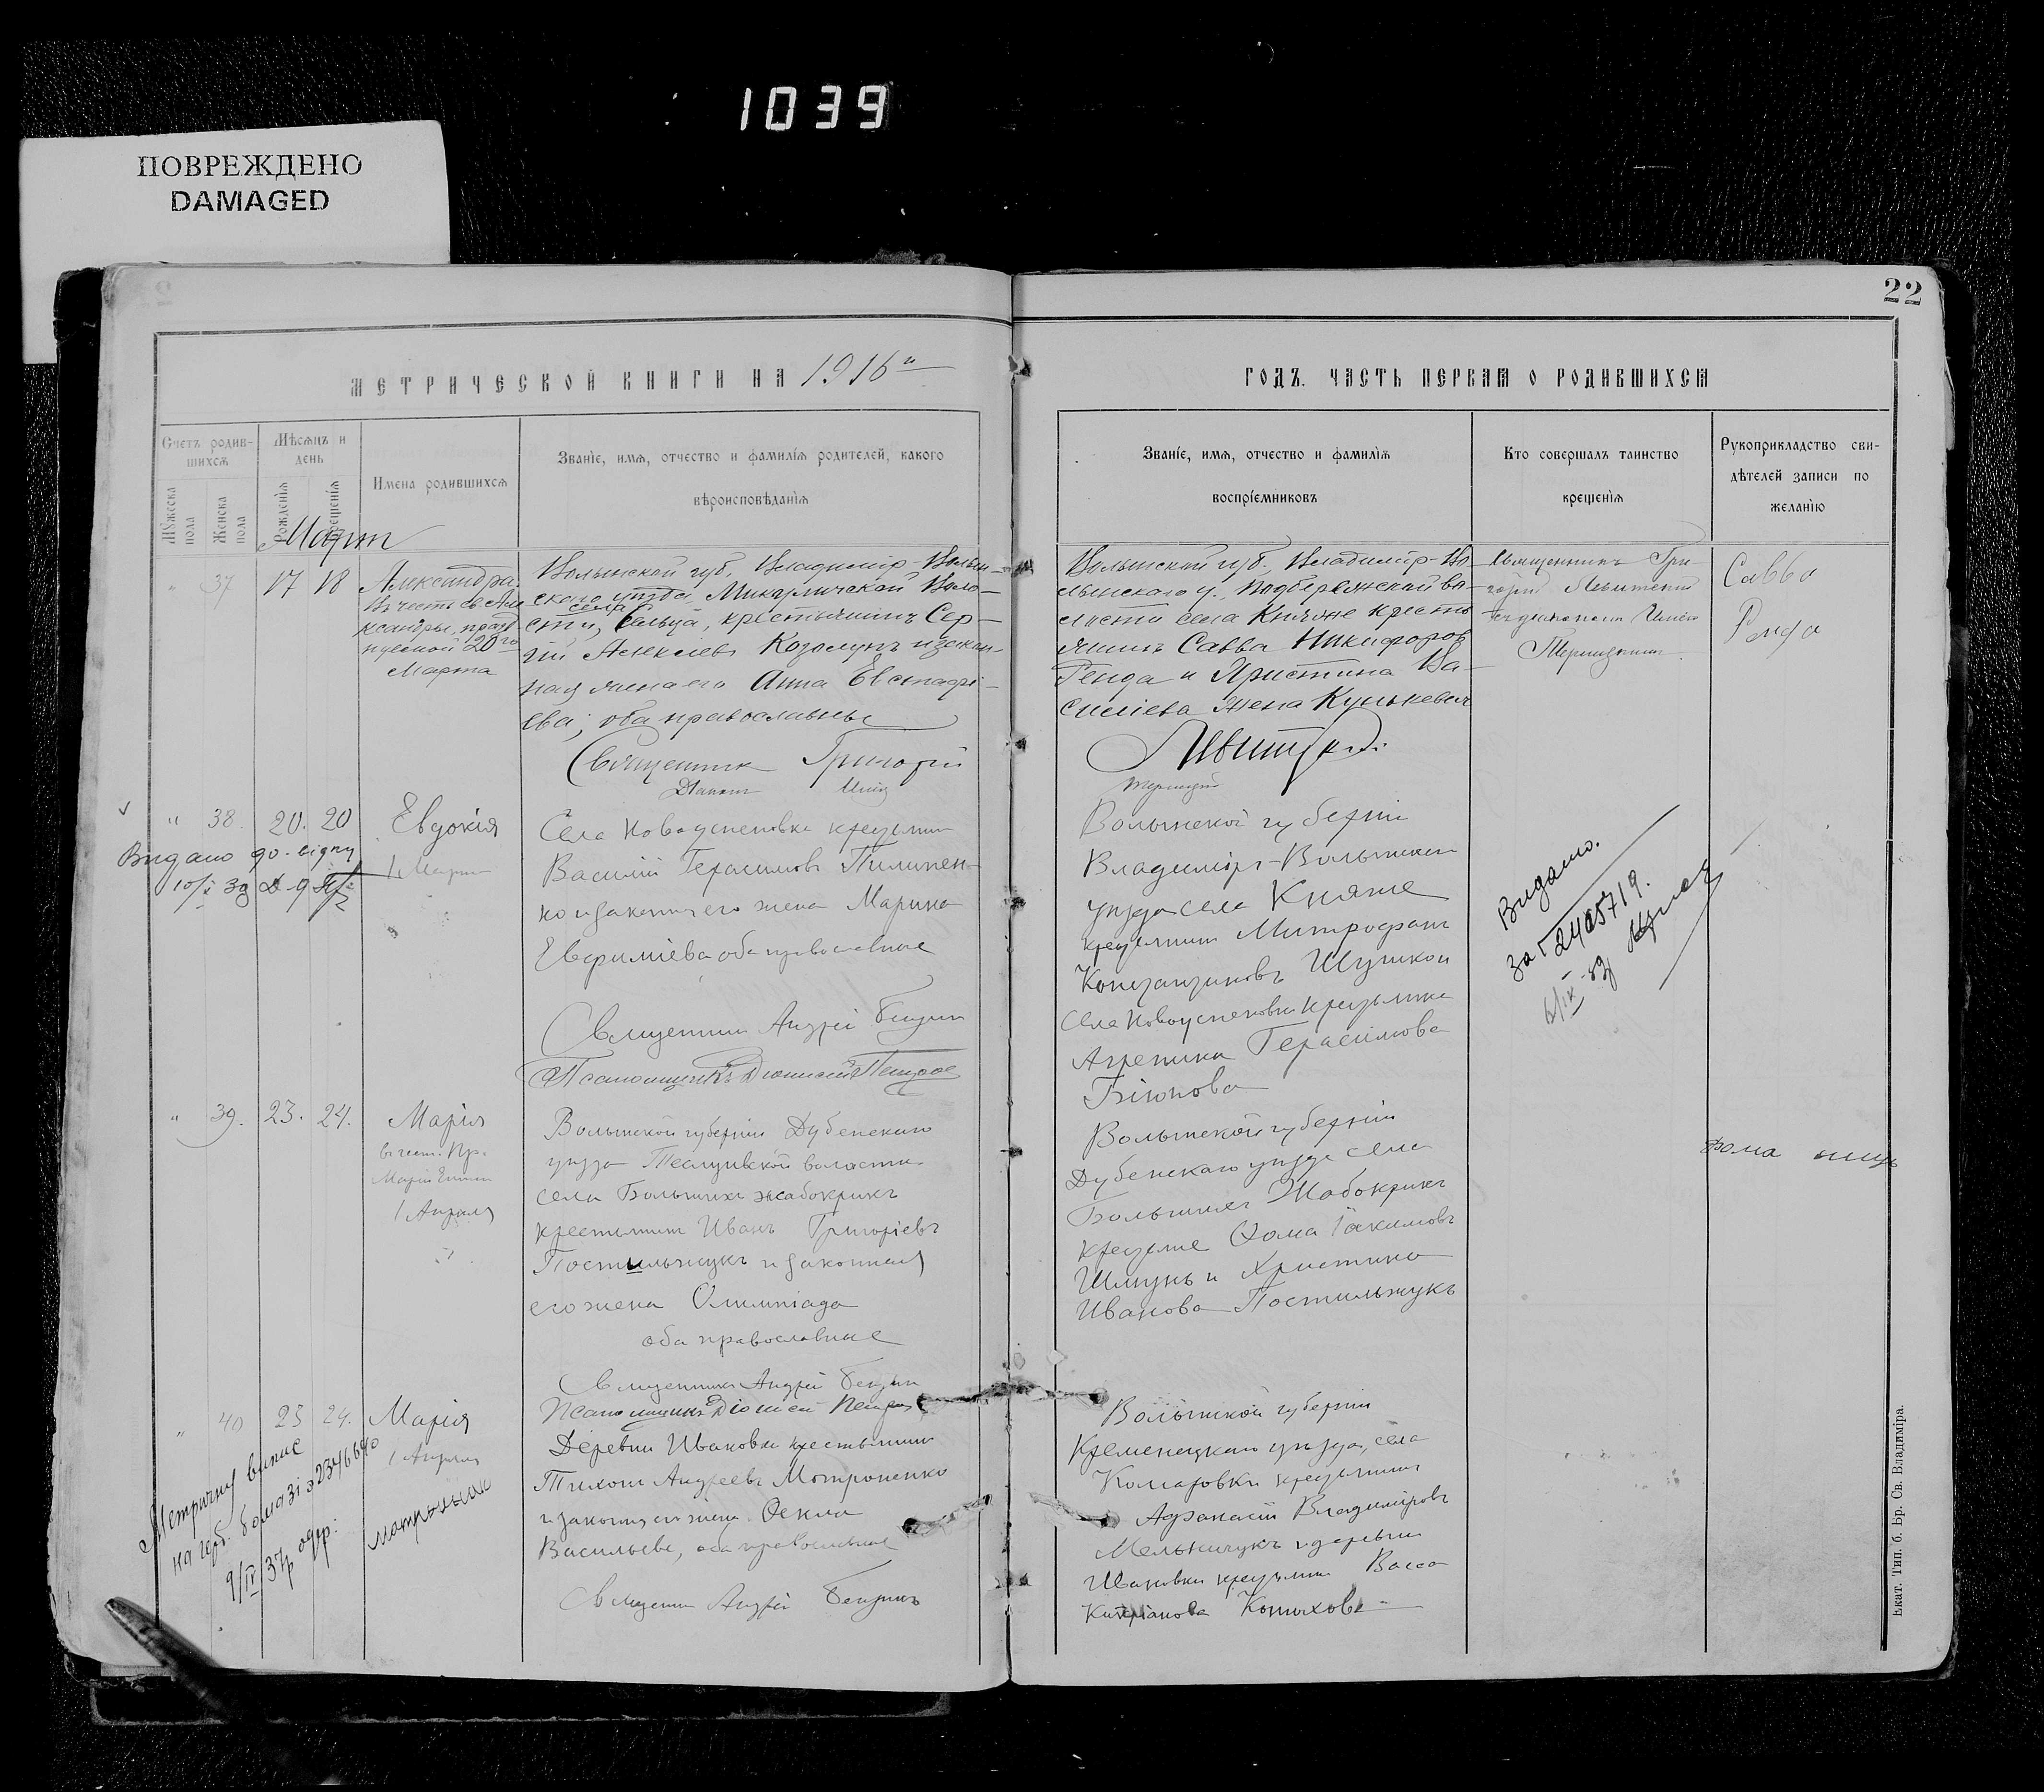 1039
ПОВРЕЖДЕНО
DAMAGED
22
МЕТРИЧЕСКОЙ КНИГИ НА 1916й
ГОДЪ. ЧАСТЬ ПЕРВАЯ О РОДИВШИХСЯ
Счетъ родив-
шихсѧ
Мужеска пола
Женска пола
Мѣсѧцъ и
день
Рожденїѧ
Крещенїѧ
Имена родившихсѧ
Званїе, имѧ, отчество и фамилїѧ родителей, какого
вѣроисповѣданїѧ
Званїе, имѧ, отчество и фамилїѧ
воспрїемниковъ
Кто совершалъ таинство
крещенїѧ
Рукоприкладство сви-
дѣтелей записи по
желанїю
Мартъ
" 37 17 18
Александра
въ честь св. Але
ксандры, празд
нуемой 20го
Марта
Волынской губ. Владимір-Волын-
скаго уѣзда Микуличской Воло-
села
сти, Сельца, крестьянинъ Сер-
гій Алексіевъ Козолупъ и закон-
ная жена его Анна Евстафі-
ева; оба православные
Священник Григорій
Діакон
Волынской губ. Владимір-Во-
лынскаго у. Подбережской во-
лости села Княже кресть
янинъ Савва Никифоровъ
Генда и Христина Ва-
силіева жена Кунькевич
Левитскій
Священникъ Гри
горій Левитскій
Савва
Генда
" 38. 20. 20
Евдокія
1 Марта
Видано
10/X 39
Села Новоуспеновка крестьянин
Василій Герасимовъ Пилипен-
ко и законная его жена Марина
Евфиміева оба православные
Священник Андрей
Псаломщикъ Діонисій Петров
Волынской губерніи
Владиміръ-Волынскаго
уѣзда села Княже
крестьянин Митрофанъ
Константиновъ
села Новоуспеновки крестьянка
Агрепина Герасимова
Видано.
за 2405719.
" 39. 23. 24.
Марія
въ чест. Пр.
Маріи Египет
1 Апрѣля
Волынской губерніи Дубенскаго
уѣзда Теслуговской волости
села Большихъ Жабокрикъ
крестьянин Иванъ Григоріевъ
Постильжукъ и законная
его жена Олимпіада
оба православные
Священникъ Андрей
Псаломщикъ Діонисій Петров
Волынской губерніи
Дубенскаго уѣзда села
Большихъ Жабокрикъ
крестьяне Ѳома Іакимовъ
и Христина
Иванова Постильжукъ
Фома
" 40 23 24.
Марія
1 Апрѣля
Метричну випис
на герб. бомазі 32346640
9/IV 37р одер:
Деревни Ивановки крестьянин
Тихон Андреевъ Мотроненко
и законная его жена Ѳекла
Васильева, оба православные
Священник Андрей
Волынской губерніи
Кременецкаго уѣзда, села
Комаровки крестьянинъ
Афанасій Владиміровъ
Мельничукъ и деревни
Ивановки крестьянка Васса
Кипріанова Конюхова
Екат. Тип. б. Бр. Св. Владиміра.